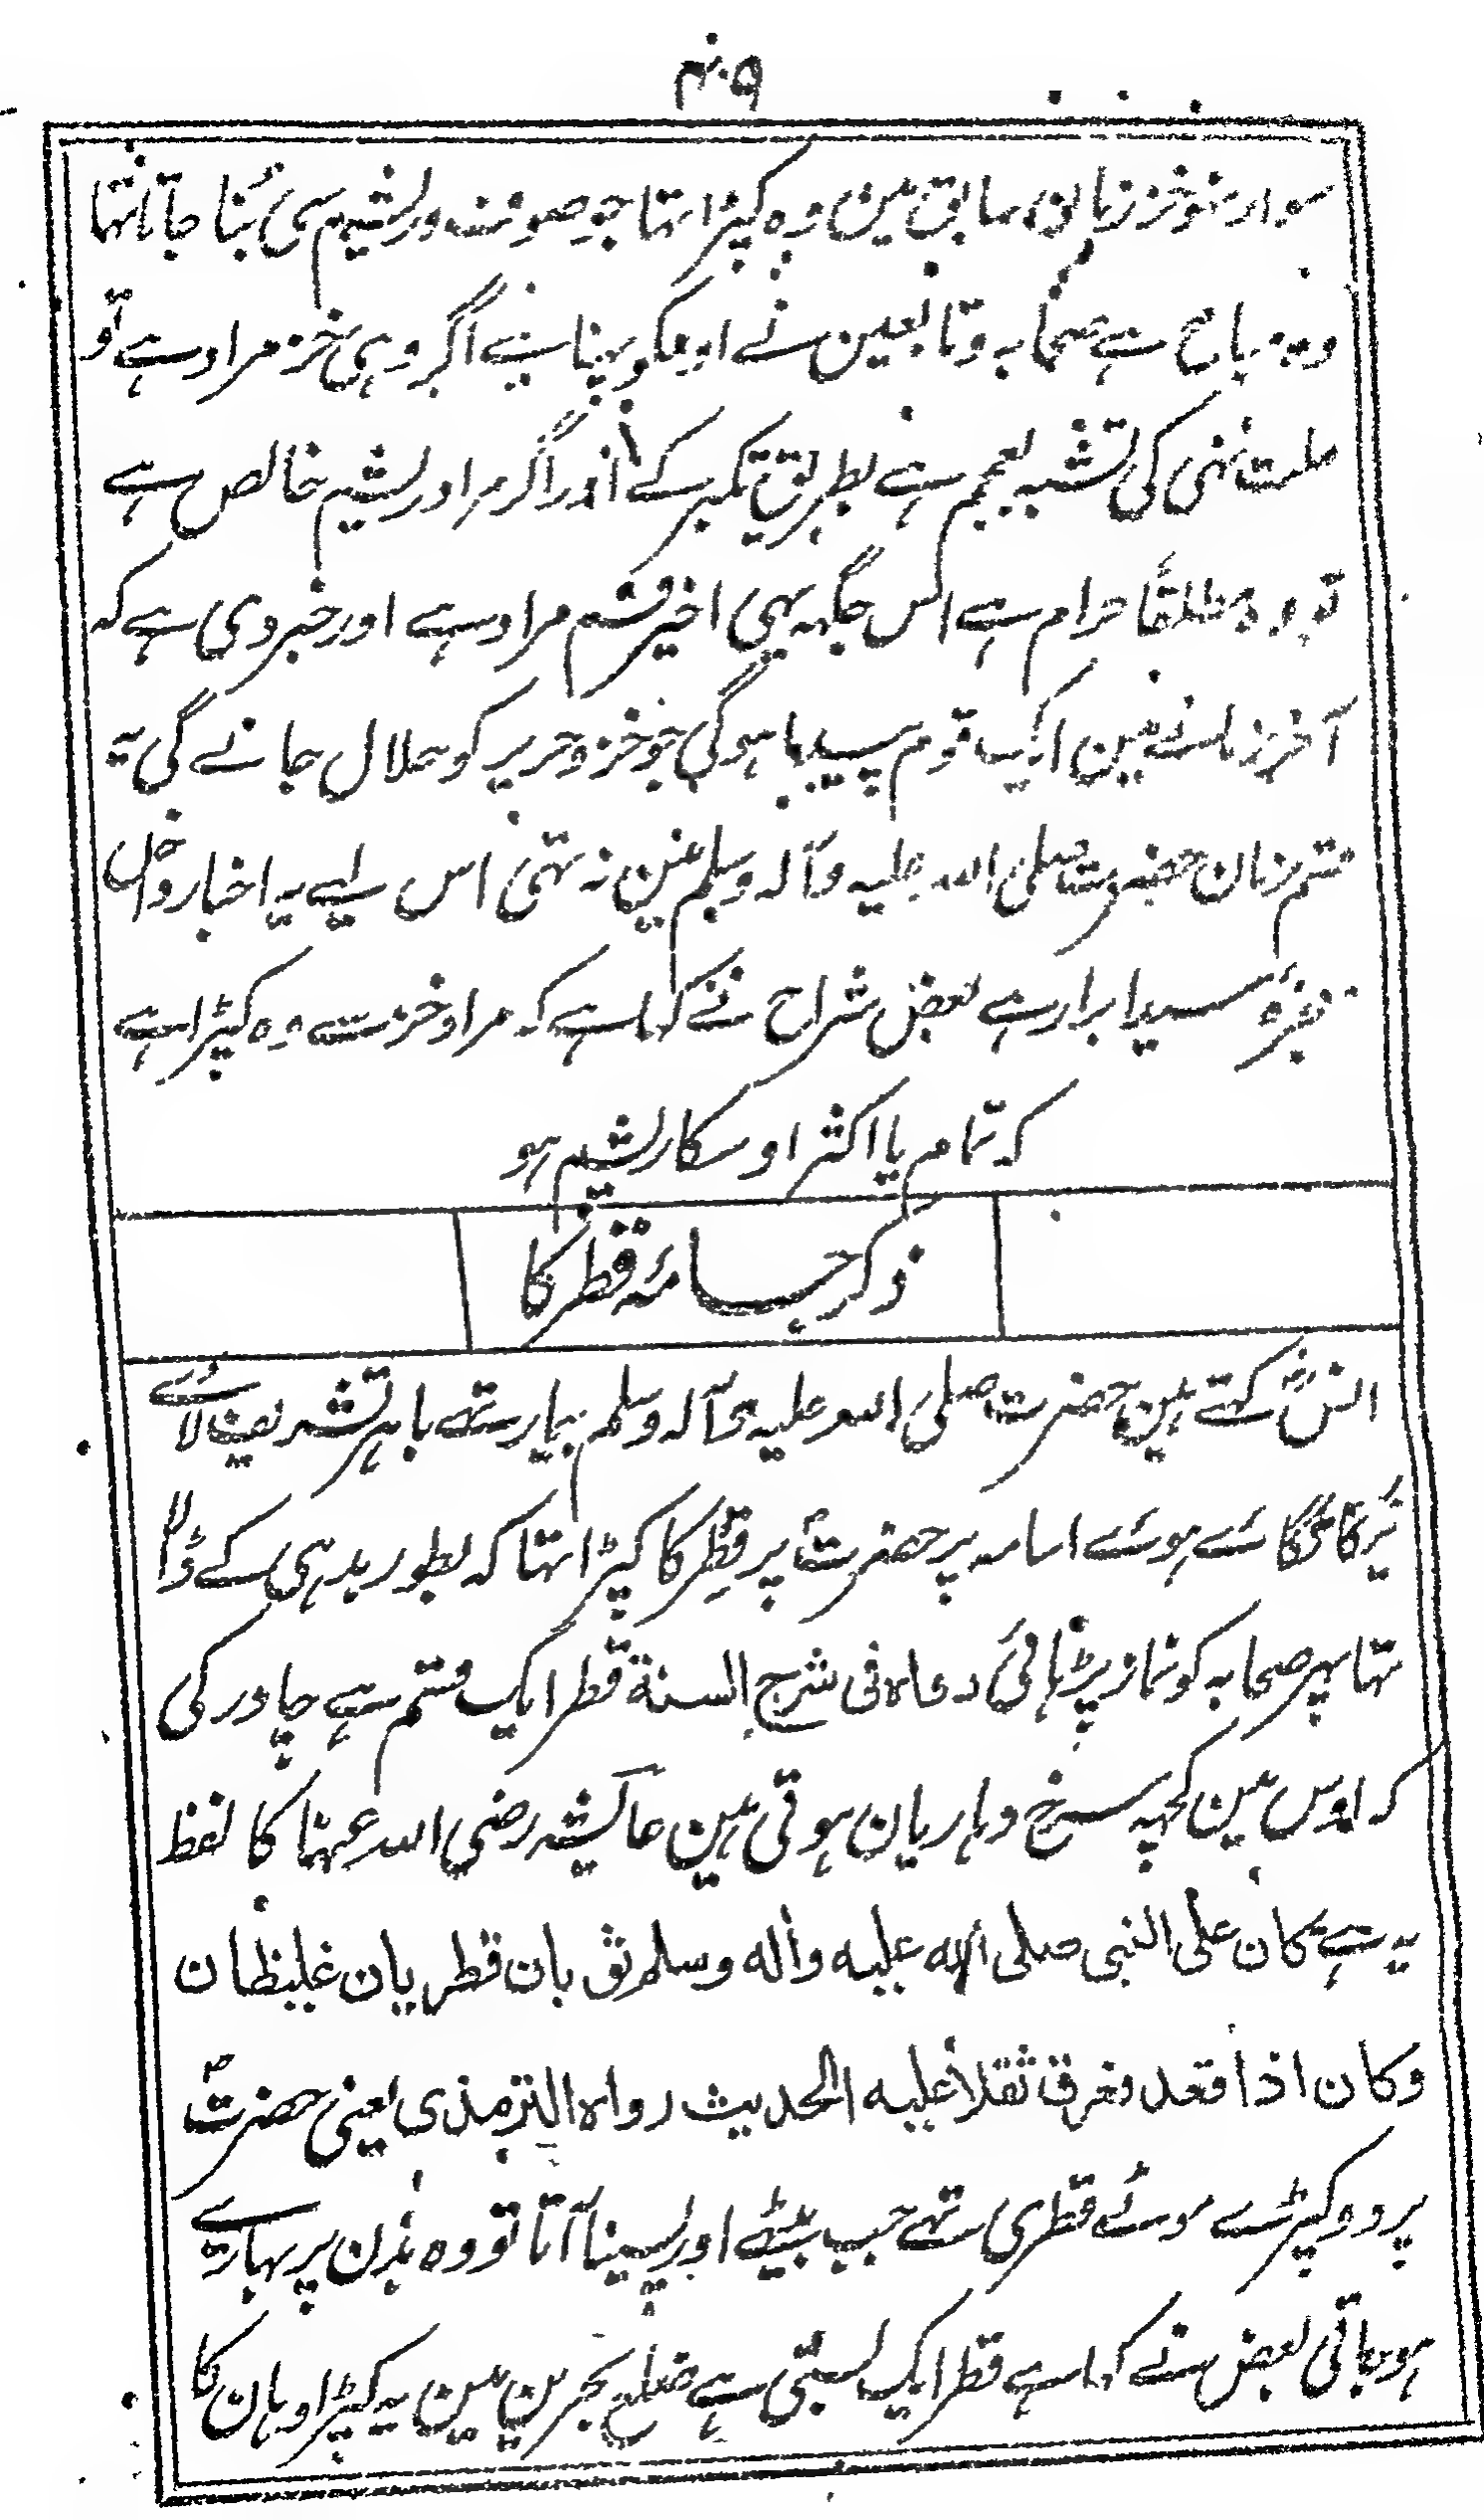 ۴۰۹
سوار ہو خز زمانہ سابق مین وہ کپڑا تہا جو صوف و ریشیم سی بُنا جاتا تہا
وہ مباح ہے صحابہ و تابعین نے اوسکو پہنا ہے اگر وہی خز مراد ہے تو
علت نہی کی تشبہ بعجم ہے بطریق تکبر کے اور اگر مراد ریشیم خالص ہے
تو وہ مطلقًا حرام ہے اس جگہہ یہی اخیر قسم مراد ہے اور خبر دی ہے کہ
آخر زمانے مین ایک قوم پیدا ہوگی جو خز و حریر کو حلال جانے گی یہ
قسم زمان حضرت صلی اللہ علیہ وآلہ وسلم مین نہ تہی اس لیے یہ اخبار داخل
معجزہٴ سید ابرار ہے بعض شراح نے کہا ہے کہ مراد خز سے وہ کپڑا ہے
کہ تمام یا اکثر اوسکا ریشیم ہو
ذکر جامۂ قطر کا
انسؓ کہتے ہین حضرت صلی اللہ علیہ وآلہ وسلم بیمار تہے باہر تشریف لائے
تکیہ لگائے ہوئے اسامہ پر حضرتؐ پر قِطر کا کپڑا تہا کہ بطور بدہی کے ڈالا
تہا پہر صحابہ کو نماز پڑہائی رواہ فی شرح السنة قطر ایک قسم ہے چادر کی
کہ اوس مین کچہہ سرخ دہاریان ہوتی ہین عایشہ رضی اللہ عنہا کا لفظ
یہ ہے کان علی النبی صلی الله علیه واٰله وسلم ثوبان قطریان غلیظان
وکان اذا قعد فعرق ثقلا علیه الحدیث رواه الترمذی یعنی حضرتؐ
پر دو کپڑے موٹے قطری تہے جب بیٹہے اور پسینا آتا تو وہ بدن پر بہاری
ہو جاتی بعض نے کہا ہے قطر ایک بستی ہے ضلع بحرین مین یہ کپڑا وہان کا